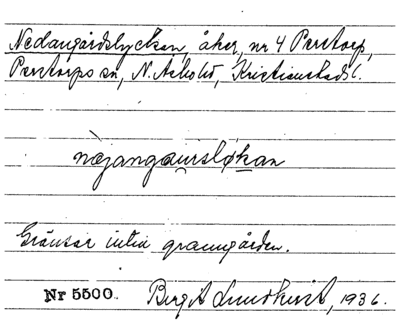 Nedangårdslyckan, åker, nr 4 Perstorp,
Perstorps sn, N. Åsbo hd, Kristianstads l.
næjangaursløkan
Gränsar intill granngården.
Nr 5500. Birgit Lundkvist, 1936.